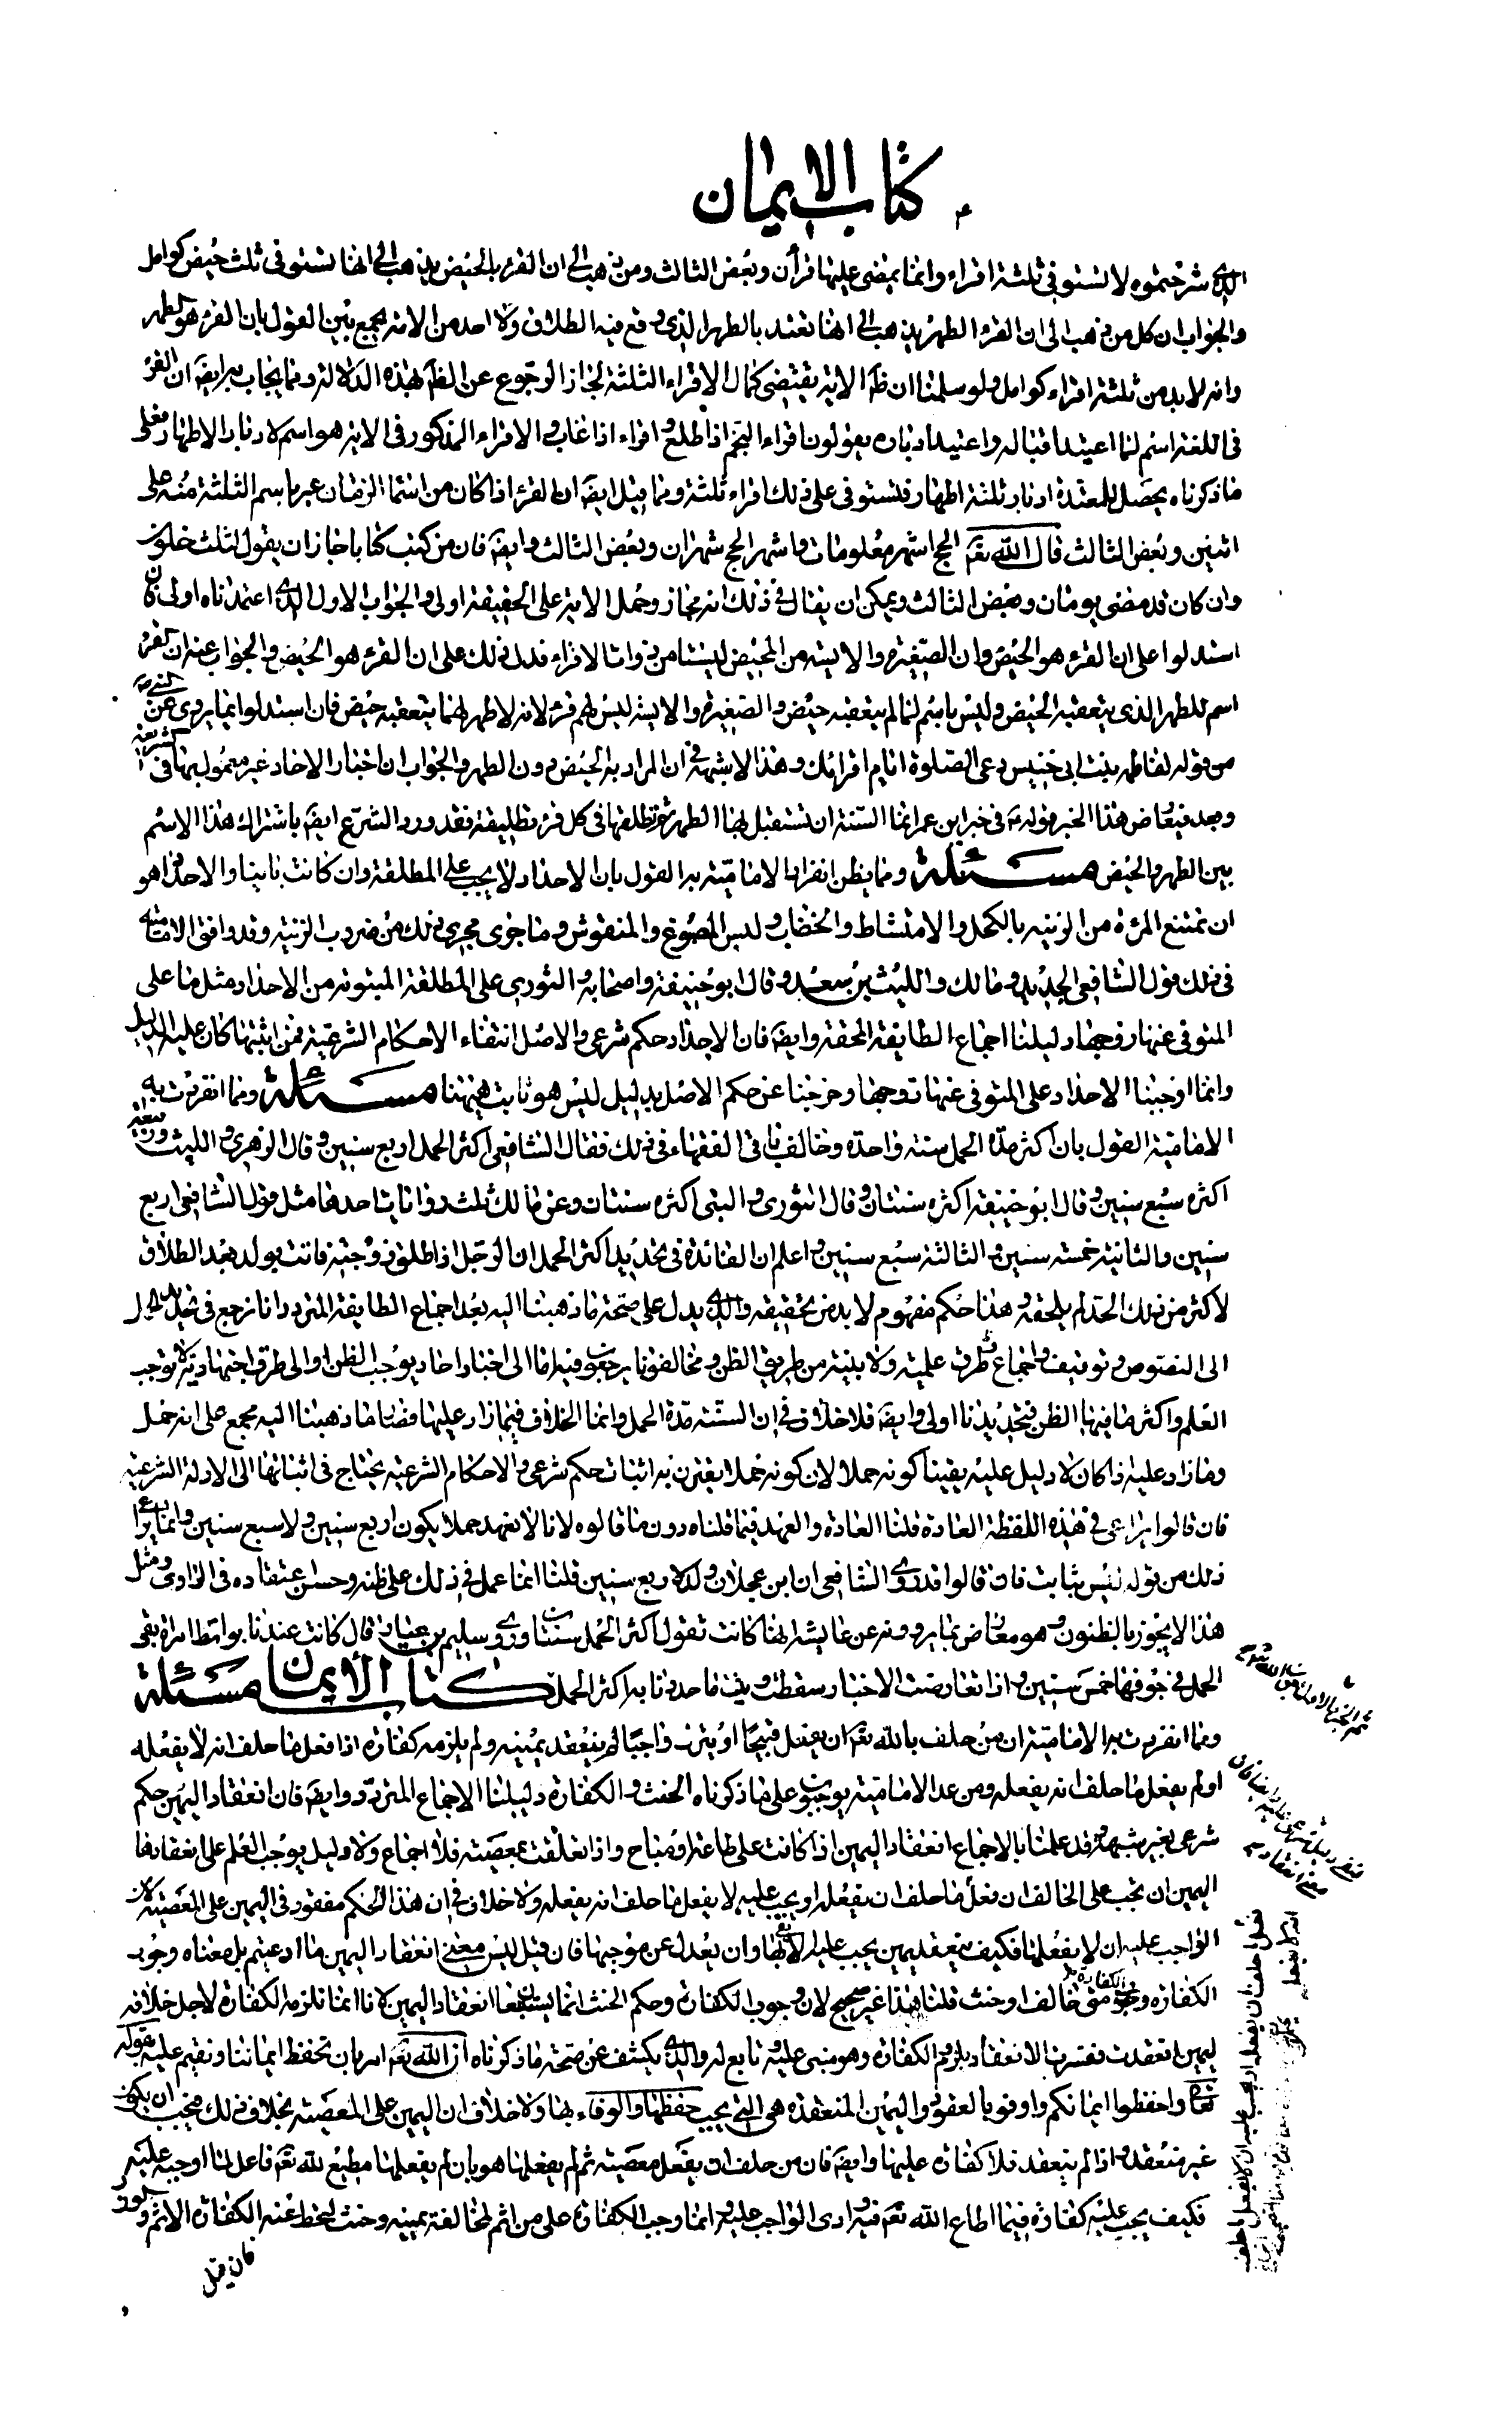 كتاب الايمان
الذى شرحتموه لا تستوفى ثلثة اقراء وانما يمضى عليها قرأن وبعض الثالث ومن ذهب الى ان القرء الحيض يذهب الى انها تستوفى ثلث حيض كوامل
والجواب ان كل من ذهب الى ان القرء الطهر يذهب الى انها تعتد بالطهر الذى وقع فيه الطلاق ولا احد من الامة يجمع بين القول بان القرء هو الطهر
وانه لابد من ثلثة اقراء كوامل ولو سلمنا ان ظ الاية يقتضى كمال الاقراء الثلثة لجاز الرجوع عن الظ بهذه الدلالة ومما يجاب به ايض ان القرء
فى اللغة اسم لما اعتيد اقباله واعتيد ادباره يقولون اقراء النجم اذا طلع واقراء اذا غاب والاقراء المذكور فى الاية هو اسم لادبار الاطهار فعلى
ما ذكرناه يحصل للمعتدة ادبار ثلثة اطهار فتستوفى على ذلك اقراء ثلثة ومما قيل ايض ان القرء اذا كان من اسماء الزمان عبر باسم الثلثة منه على
اثنين وبعض الثالث قال الله تع الحج اشهر معلومات واشهر الحج شهران وبعض الثالث وايض فان من كتب كتابا جاز ان يقول لثلث خلون
وان كان قد مضى يومان وبعض الثالث ويمكن ان يقال فى ذلك انه مجاز وحمل الاية على الحقيقة اولى والجواب الاول الذى اعتمدناه اولى فان
استدلوا على ان القرء هو الحيض وان الصغيرة والايسة من المحيض ليستا من ذوات الاقراء فدل ذلك على ان القرء هو الحيض والجواب عنه ان القرء
اسم للطهر الذى يتعقبه الحيض وليس باسم لما لم يتعقبه حيض والصغيرة والايسة ليس لهم قرء لانه لا طهر لهما يتعقبه حيض فان استدلوا بما يروى عن النبى ص
من قوله لفاطمه بنت ابى حبيس دعى الصلوة ايام اقرائك وهذا لا شبهة فى ان المراد به الحيض دون الطهر والجواب ان اخبار الاحاد غير معمول بها فى الشريعة
وبعد فيعارض هذا الخبر قوله ع فى خبر ابن عمر انما السنة ان تستقبل بها الطهر ثم تطلقها فى كل قرء تطليقة فقد ورد الشرع ايض باشتراك هذا الاسم
بين الطهر والحيض مسئلة ومما يظن انفراد الامامية به القول بان الاحداد لا يجب على المطلقة وان كانت باينا والاحداد هو
ان تمتنع المرءة من الزينة بالكحل والامتشاط والخضاب ولبس المصبوغ والمنقوش وما جرى مجرى ذلك من ضروب الزينة وقد وافق الامامية
فى ذلك قول الشافعى الجديد ومالك والليث بن سعد وقال ابو حنيفة واصحابه والثورى على المطلقة المبتوتة من الاحداد مثل ما على
المتوفى عنها زوجها دليلنا اجماع الطايفة المحقة وايض فان الاحداد حكم شرعى والاصل انتفاء الاحكام الشرعية فمن اثبتها كان عليه الدليل
وانما اوجبنا الاحداد على المتوفى عنها زوجها وخرجنا عن حكم الاصل بدليل ليس هو ثابت هيهنا مسئلة ومما انفردت به
الامامية القول بان اكثر مدة الحمل سنة واحدة وخالف باقى الفقهاء فى ذلك فقال الشافعى اكثر الحمل اربع سنين وقال الزهرى والليث وربيعة
اكثره سبع سنين وقال ابو حنيفة اكثره سنتان وقال الثورى والبتى اكثره سنتان وعن مالك ثلث روايات احدها مثل قول الشافعى اربع
سنين والثانية خمسة سنين والثالثة سبع سنين واعلم ان الفائدة فى تحديد اكثر الحمل ان الرجل اذا طلق زوجته فاتت بولد بعد الطلاق
لاكثر من ذلك الحد لم يلحقه وهذا حكم مفهوم لابد من تحقيقه والذى يدل على صحة ما ذهبنا اليه بعد اجماع الطايفة المتردد انا نرجع فى تحديد الحمل
الى النصوص وتوقيف واجماع وطرق علمية ولا يثبته من طريق الظن ومخالفونا يرجعون فيه اما الى اخبار احاد يوجب الظن او الى طرق اجتهادية لا يوجب
العلم واكثر ما فيها الظن فتحديدنا اولى وايض فلا خلاف فى ان السنة مدة الحمل وانما الخلاف فيما زاد عليها فصار ما ذهبنا اليه مجمع على انه حمل
وما زاد عليه اذا كان لا دليل عليه يقينا كونه حملا لان كونه حملا يقترن به اثبات حكم شرعى والاحكام الشرعية يحتاج فى اثباتها الى الادلة الشرعية
فان قالوا يراعى فى هذه اللفظة العادة قلنا العادة والعهد فيما قلناه دون ما قالوه لانا لا نعهد حملا يكون اربع سنين ولا سبع سنين وانما يدعى
ذلك من قوله ليس بثابت فان قالوا قد روى الشافعى ان ابن عجلان ولد لاربع سنين قلنا انما عمل فى ذلك على ظنه وحسن اعتقاده فى الراوى ومثل
هذا لا يجوز بالظنون وهو معارض بما يروونه عن عايشة انها كانت تقول اكثر الحمل سنتان وروى سليم بن عباد قال كانت عندنا بواسط امراة بقى
الحمل فى جوفها خمس سنين واذا تعارضت الاخبار سقطت وثبت ما حددنا به اكثر الحمل كتاب الايمان مسئلة
ومما انفردت به الامامية ان من حلف بالله تع ان يفعل قبيحا او يترك واجبا لم ينعقد يمينه ولم يلزمه كفارة اذا فعل ما حلف انه لا يفعله
او لم يفعل ما حلف انه يفعله ومن عدا الامامية يوجبون على ما ذكرناه الحنث والكفارة دليلنا الاجماع المتردد وايض فان انعقاد اليمين حكم
شرعى بغير شبهة وقد علمنا بالاجماع انعقاد اليمين اذا كانت على طاعة او مباح واذا تعلقت بمعصية فلا اجماع ولا دليل يوجب العلم على انعقادها
اليمين ان يجب على الحالف ان يفعل ما حلف ان يفعله او يجب عليه لا يفعل ما حلف انه يفعله ولا خلاف فى ان هذا الحكم مفقود فى اليمين على المعصية لان
الواجب عليه ان لا يفعلها فكيف ينعقد يمين يجب عليه الا بها وان يعدل عن موجبها فان قيل ليس معنى انعقاد اليمين ما ادعيتم بل معناه وجوب
الكفارة متى خالف او حنث قلنا هذا غير صحيح لان وجوب الكفارة وحكم الحنث انما يتبعان انعقاد اليمين لانا انما نلزمه الكفارة لاجل خلافه
ليمين انعقدت فنفسرها الانعقاد بلزوم الكفارة وهو مبنى عليه وتابع له والذى يكشف عن صحة ما ذكرناه ان الله تع امر بان نحفظ ايماننا ونقيم عليها بقوله
تعا واحفظوا ايمانكم واوفوا بالعقود واليمين المنعقده هى التى يجب حفظها والوفاء بها ولا خلاف ان اليمين على المعصية بخلاف ذلك فيجب ان يكون
غير منعقدة اذا لم ينعقد فلا كفارة عليها وايض فان من حلف ان يفعل معصية ثم لم يفعلها هو بان لم يفعلها مطيع لله تع فاعل لما اوجبه عليه
فكيف يجب عليه كفارة فيما اطاع الله تع فيه وادى الواجب عليه وانما وجب الكفارة على من اثم لمخالفة يمينه وحنث ليحط عنه الكفارة الاثم والوزر
فان قيل